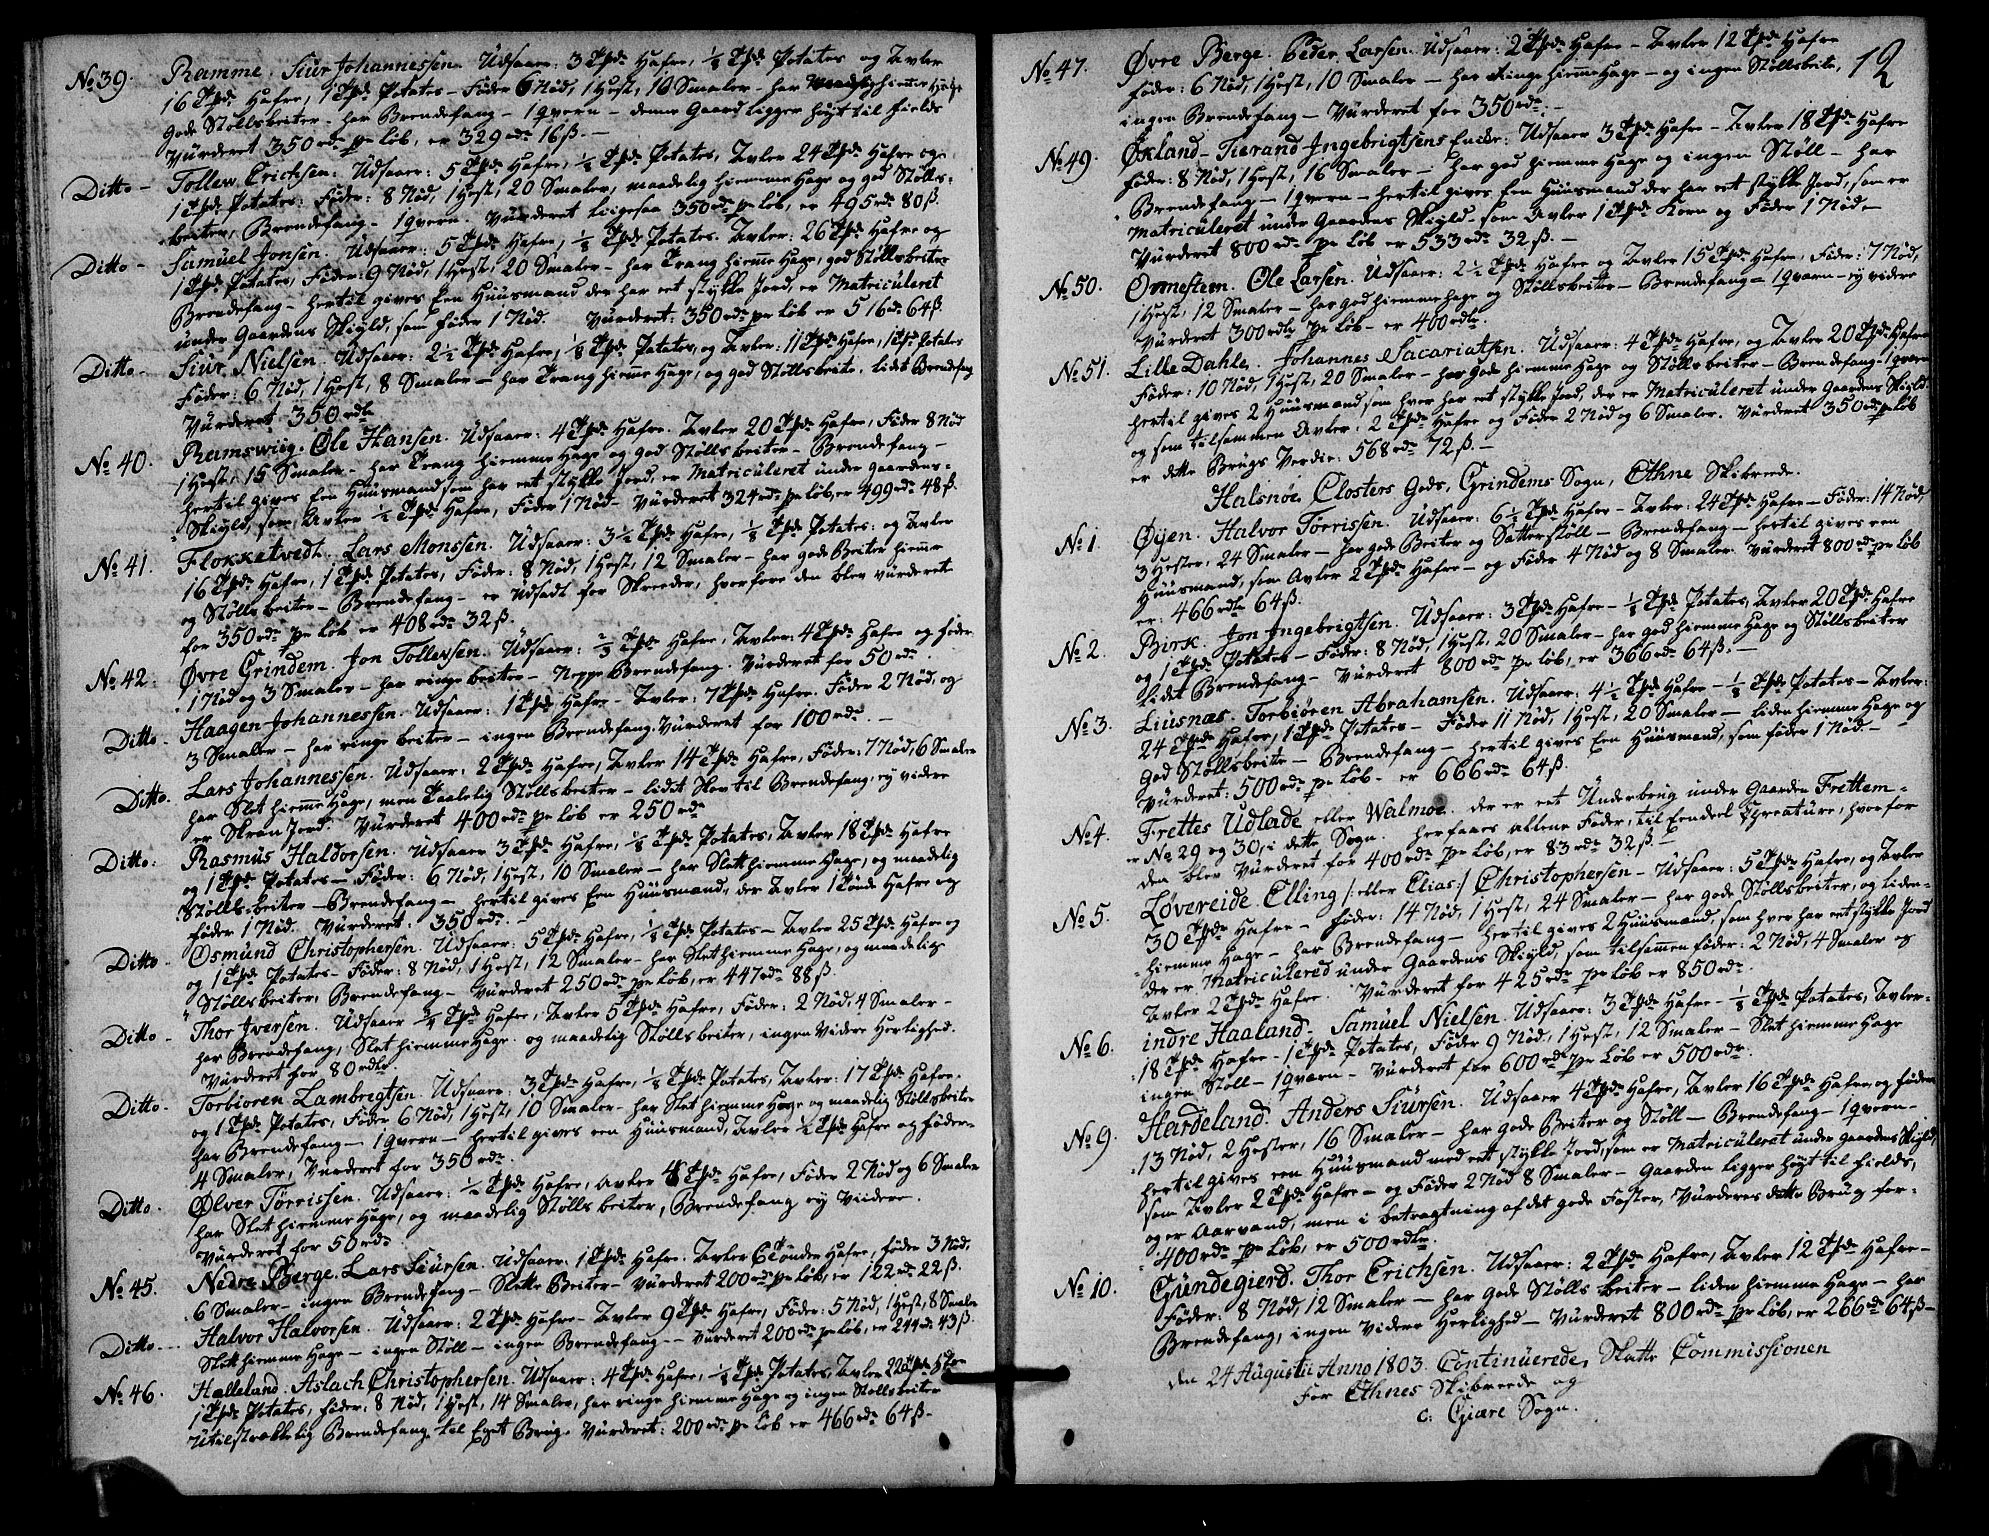 No 39. Ramme. Siur Johannessen. Udsaaer: 3 Tpde Hafre, 1/8 Tpde Potates og Avler
16 Tpde Hafre, 1 Tpde Potates – Føder 6 Nød, 1 Hest, 10 Smaler – har Maadelig hiemme Hage
gode Støllsbeiter – har Brendefang – 1 qvern – denne Gaard ligger høyt til fields
Vurderet 350 rdr pr Løb, er 329 rdr 16 ß. –
Ditto – Tollew Erichsen. Udsaaer: 5 Tpde Hafre, 1/4 Tpde Potates, Avler 24 Tpde Hafre og
1 Tpde Potates, Føder: 8 Nød, 1 Hest, 20 Smaler, maadelig hiemme Hage og god Støllsbeiter,
Brendefang – 1 qvern. Vurderet ligesaa 350 rdr pr Løb, er 495 rdr 80 ß.
Ditto – Samuel Jonsen. Udsaaer: 5 Tpde Hafre, 1/8 Tpde Potates. Avler: 26 Tpde Hafre og
1 Tpde Potates, Føder: 9 Nød, 1 Hest, 20 Smaler – har Trang hieme Hage, god Støllsbeiter
Brendefang – hertil gives Een Huusmand der har eet stykke Jord, er Matriculeret
under Gaardens Skyld, som føder 1 Nød. Vurderet: 350 rdr pr Løb er 516 rdr 64 ß.
Ditto – Siur Nielsen. Udsaaer: 2 1/2 Tpde Hafre, 1/8 Tpde Potates, og Avler: 11 Tpde Hafre, 1 Tpde Potates
Føder: 6 Nød, 1 Hest, 8 Smaler – har Trang hieme Hage, og god Støllsbeite, lidet Brendefang
Vurderet 350 rdlr
No 40. Ramswiig. Ole Hansen. Udsaaer: 4 Tpde Hafre. Avler 20 Tpde Hafre, Føder 8 Nød
1 Hest, 15 Smaler – har Trang hiemme Hage og god Støllsbeiter – Brendefang –
hertil gives Een Huusmand som har eet stykke Jord, er Matriculeret under Gaardens
Skyld, som Avler 1/2 Tpde Hafre, Føder 1 Nød – Vurderet 324 rdr pr Løb, er 499 rdr 48 ß.
No 41. Flokketvedt. Lars Monssen. Udsaaer: 3 1/2 Tpde Hafre, 1/8 Tpde Potates: og Avler
16 Tpde Hafre, 1 Tpde Potates, Føder: 8 Nød, 1 Hest, 12 Smaler – har gode Beiter hieme
og Støllsbeiter – Brendefang – er Udsadt for Skreeder, hvorfore den blev vurderet
for 350 rdr pr Løb er 408 rdr 32 ß.
No 42. Øvre Grindem. Jon Tollevsen. Udsaaer: 2/3 Tpde Hafre, Avler: 4 Tpde Hafre og føder
1 Nød og 3 Smaler – har ringe beiter – Neppe Brendefang. Vurderet for 50 rdr.
Ditto. Haagen Johannessen. Udsaaer: 1 Tpde Hafre – Avler: 7 Tpde Hafre. Føder 2 Nød, og
3 Smaler – har ringe beiter – ingen Brendefang. Vurderet for 100 rdr. –
Ditto. Lars Johannessen. Udsaaer: 2 Tpde Hafre, Avler 14 Tpde Hafre, Føder: 7 Nød, 6 Smaler
har Slet hieme Hage, men Taalelig Støllsbeiter – lidet Skov til Brendefang, ey videre
er Skran Jord. Vurderet 400 rdr pr Løb er 250 rdr
Ditto: Rasmus Haldorsen. Udsaaer 3 Tpde Hafre, 1/8 Tpde Potates, Avler 18 Tpde Hafre
og 1 Tpde Potates – Føder: 6 Nød, 1 Hest, 10 Smaler – har Slett hiemme Hage, og maadelig
Støllsbeiter – Brendefang – hertil gives Een Huusmand, der Avler 1 Tønde Hafre og
føder 1 Nød. Vurderet: 350 rdr. –
Ditto – Osmund Christophersen. Udsaaer: 5 Tpde Hafre, 1/8 Tpde Potates – Avler 25 Tpde Hafre og
og 1 Tpde Potates – Føder: 8 Nød, 1 Hest, 12 Smaler – har Slet hiemme Hage, og maadelige
Støllsbeiter, Brendefang – Vurderet 250 rdr pr Løb, er 447 rdr 88 ß.
Ditto – Thor Iversen. Udsaaer 3/4 Tpde Hafre, Avler 5 Tpde Hafre, Føder: 2 Nød, 4 Smaler –
har Brendefang, Slet hiemme Hage og maadelig Støllsbeiter, ingen Videre Herlighed.
Vurderet for 80 rdlr.
Ditto – Torbioren Lambregtsen. Udsaaer: 3 Tpde Hafre, 1/8 Tpde Potates, Avler: 17 Tpde Hafre,
og 1 Tpde Potates, Føder 6 Nød, 1 Hest, 10 Smaler – har Slet hiemme Hage og maadelig Støllsbeiter
har Brendefang – 1 qvern – hertil gives een Huusmand, Avler 1/2 Tpde Hafre og føder
4 Smaler, Vurderet for 350 rdr.
Ditto. Ølver Tørrissen. Udsaaer: 1/2 Tpde Hafre, Avler 4 Tpde Hafre, Føder 2 Nød og 6 Smaler
har Slet hiemme Hage, og maadelig Støllsbeiter, Brendefang ey Viidere.
Vurderet for 50 rdr
No 45. Nedre Berge. Lars Siursen. Udsaaer: 1 Tpde Hafre. Avler 6 Tønder Hafre, føder 3 Nød,
6 Smaler – ingen Brendefang – Slette Beiter – Vurderet 200 rdr pr Løb, er 122 rdr 22 ß.
Ditto – Halvor Halvorsen. Udsaaer: 2 Tpde Hafre – Avler 9 Tpde Hafre, Føder: 5 Nød, 1 Hest, 8 Smaler
Slett hiemme Hage – ingen Støll – ingen Brendefang – Vurderet 200 rdr pr Løb, er 244 rdr 43 ß.
No 46. Halleland. Aslach Christophersen. Udsaaer: 4 Tpde Hafre, 1/8 Tpde Potates, Avler 22 Tpde Hafre
1 Tpde Potates, føder: 8 Nød, 1 Hest, 14 Smaler, har ringe hiemme Hage og ingen Støllsbeiter
Utilstrækkelig Brendefang til Eget Brug. Vurderet: 200 rdr pr Løb er 466 rdr 64 ß –
12
No 47. Øvre Berge. Peder Larsen. Udsaaer: 2 Tpde Hafre – Avler 12 Tpde Hafre
føder: 6 Nød, 1 Hest, 10 Smaler – har Ringe hieme Hage – og ingen Støllsbeite,
ingen Brendefang – Vurderet for 350 rdr. –
No 49. Økland – Tierand Ingebrigtsens Enke: Udsaaer 3 Tpde Hafre – Avler 18 Tpde Hafre
føder: 8 Nød, 1 Hest, 16 Smaler – har god hiemme Hage og ingen Støll – har
Brendefang – 1 qvern – hertil gives Een Huusmand der har eet stykke Jord, som er
Matriculeret under Gaardens Skyld – som Avler 1 Tpde Korn og Føder 1 Nød –
Vurderet 800 rdr pr Løb er 533 rdr 32 ß. –
No 50. Ommestem. Ole Larsen. Udsaaer: 2 1/2 Tpde Hafre og Avler 15 Tpde Hafre, Føder: 7 Nød,
1 Hest, 12 Smaler – har god hiemme hage og Støllsbeiter – Brendefang – 1 qvern – ey videre
Vurderet 300 rdlr pr Løb – er 400 rdlr.
No 51. Lille Dahle. Johannes Sacariatsen. Udsaaer: 4 Tpde Hafre, og Avler 20 Tpde Hafre
Føder: 10 Nød, 1 Hest, 20 Smaler – har gode hiemme Hage og Støllsbeiter – Brendefang – 1 qvern
hertil gives 2 Huusmænd som hver har eet stykke Jord, der er Matriculeret under Gaardens Skyld
og som tilsammen Avler: 2 Tpde Hafre og Føder 2 Nød og 6 Smaler. Vurderet 350 rdr pr Løb
er dette Brugs Verdie: 568 rdr 72 ß. –
Halsnøe Closters Gods, Grindems Sogn, Ethne Skibrede.
No 1. Øyen. Halvor Tørrissen. Udsaaer: 6 1/2 Tpde Hafre – Avler: 24 Tpde Hafre – Føder: 14 Nød,
3 Hester, 24 Smaler – har gode Beiter og Sætterstøll – Brendefang – hertil gives een
Huusmand, som Avler 2 Tpde Hafre – og Føder 4 Nød og 8 Smaler. Vurderet 800 rdr pr Løb
er: 466 rdlr 64 ß.
No 2. Birk. Jon Ingebrigtsen. Udsaaer: 3 Tpde Hafre – 1/8 Tpde Potates, Avler 20 Tpde Hafre
og 1 Tpde Potates – Føder: 8 Nød, 1 Hest, 20 Smaler – har god hiemme Hage og Støllsbeiter
lidet Brendefang – Vurderet 800 rdr pr Løb, er 366 rdr 64 ß. –
No 3. Liusnæs. Torbiøren Abrahamsen. Udsaaer: 4 1/2 Tpde Hafre – 1/8 Tpde Potates – Avler:
24 Tpde Hafre, 1 Tpde Potates – Føder 11 Nød, 1 Hest, 20 Smaler – liden hiemme Hage og
god Støllsbeite – Brendefang – hertil gives Een Huusmand, som føder 1 Nød. –
Vurderet: 500 rdr pr Løb – er 666 rdr 64 ß.
No 4. Frettes Udlade eller Walmoe. der er eet Underbrug under Gaarden Frettem –
No 29 og 30, i dette Sogn. herfaaes allene Føder, til Eendeel Creature, hvorfor
den blev Vurderet for 400 rdr pr Løb, er 83 rdr 32 ß. –
No 5. Løvereide. Elling /: eller Elias :/ Christophersen – Udsaaer: 5 Tpde Hafre, og Avler
30 Tpde Hafre – føder: 14 Nød, 1 Hest, 24 Smaler – har gode Støllsbeiter, og liden
hiemme Hage – har Brendefang – hertil gives 2 Huusmænd, som hver har eet stykke Jord
der er Matriculered under Gaardens Skyld, som tilsamen føder: 2 Nød, 4 Smaler og
Avler 2 Tpde Hafre. Vurderet for 425 rdr pr Løb er 850 rdr.
No 6. indre Haaland – Samuel Nielsen. Udsaaer: 3 Tpde Hafre – 1/8 Tpde Potates, Avler –
18 Tpde Hafre – 1 Tpde Potates, Føder 9 Nød, 1 Hest, 12 Smaler – Slet hiemme Hage
ingen Støll – 1 qvern – Vurderet for 600 rdr pr Løb er 500 rdr.
No 9. Hardeland. Anders Siursen. Udsaaer 4 Tpde Hafre, Avler 16 Tpde Hafre, og føder
13 Nød, 2 Hester, 16 Smaler – har gode Beiter og Støll – Brendefang – 1 qvern –
hertil gives een Huusmand med eet stykke Jord, som er Matriculeret under Gaardens Skyld,
som Avler 2 Tpde Hafre – og Føder 2 Nød 8 Smaler – Gaarden ligger høyt til fields,
og er Aarvand, men i betragtning af det gode Foster, Vurderes dette Brug for –
400 rdr pr Løb, er 500 rdlr.
No 10. Gundegierd. Thor Erichsen. Udsaaer: 2 Tpde Hafre, Avler 12 Tpde Hafre –
Føder: 8 Nød, 12 Smaler – har gode Støllsbeiter – liden hiemme Hage – har
Brendefang, ingen Videre Herlighed – Vurderet 800 rdr pr Løb, er 266 rdr 64 ß –
den 24 Augustii Anno 1803. Continuerede, Skatte Commissionen
for Ethnes Skibreede og
Giære Sogn.